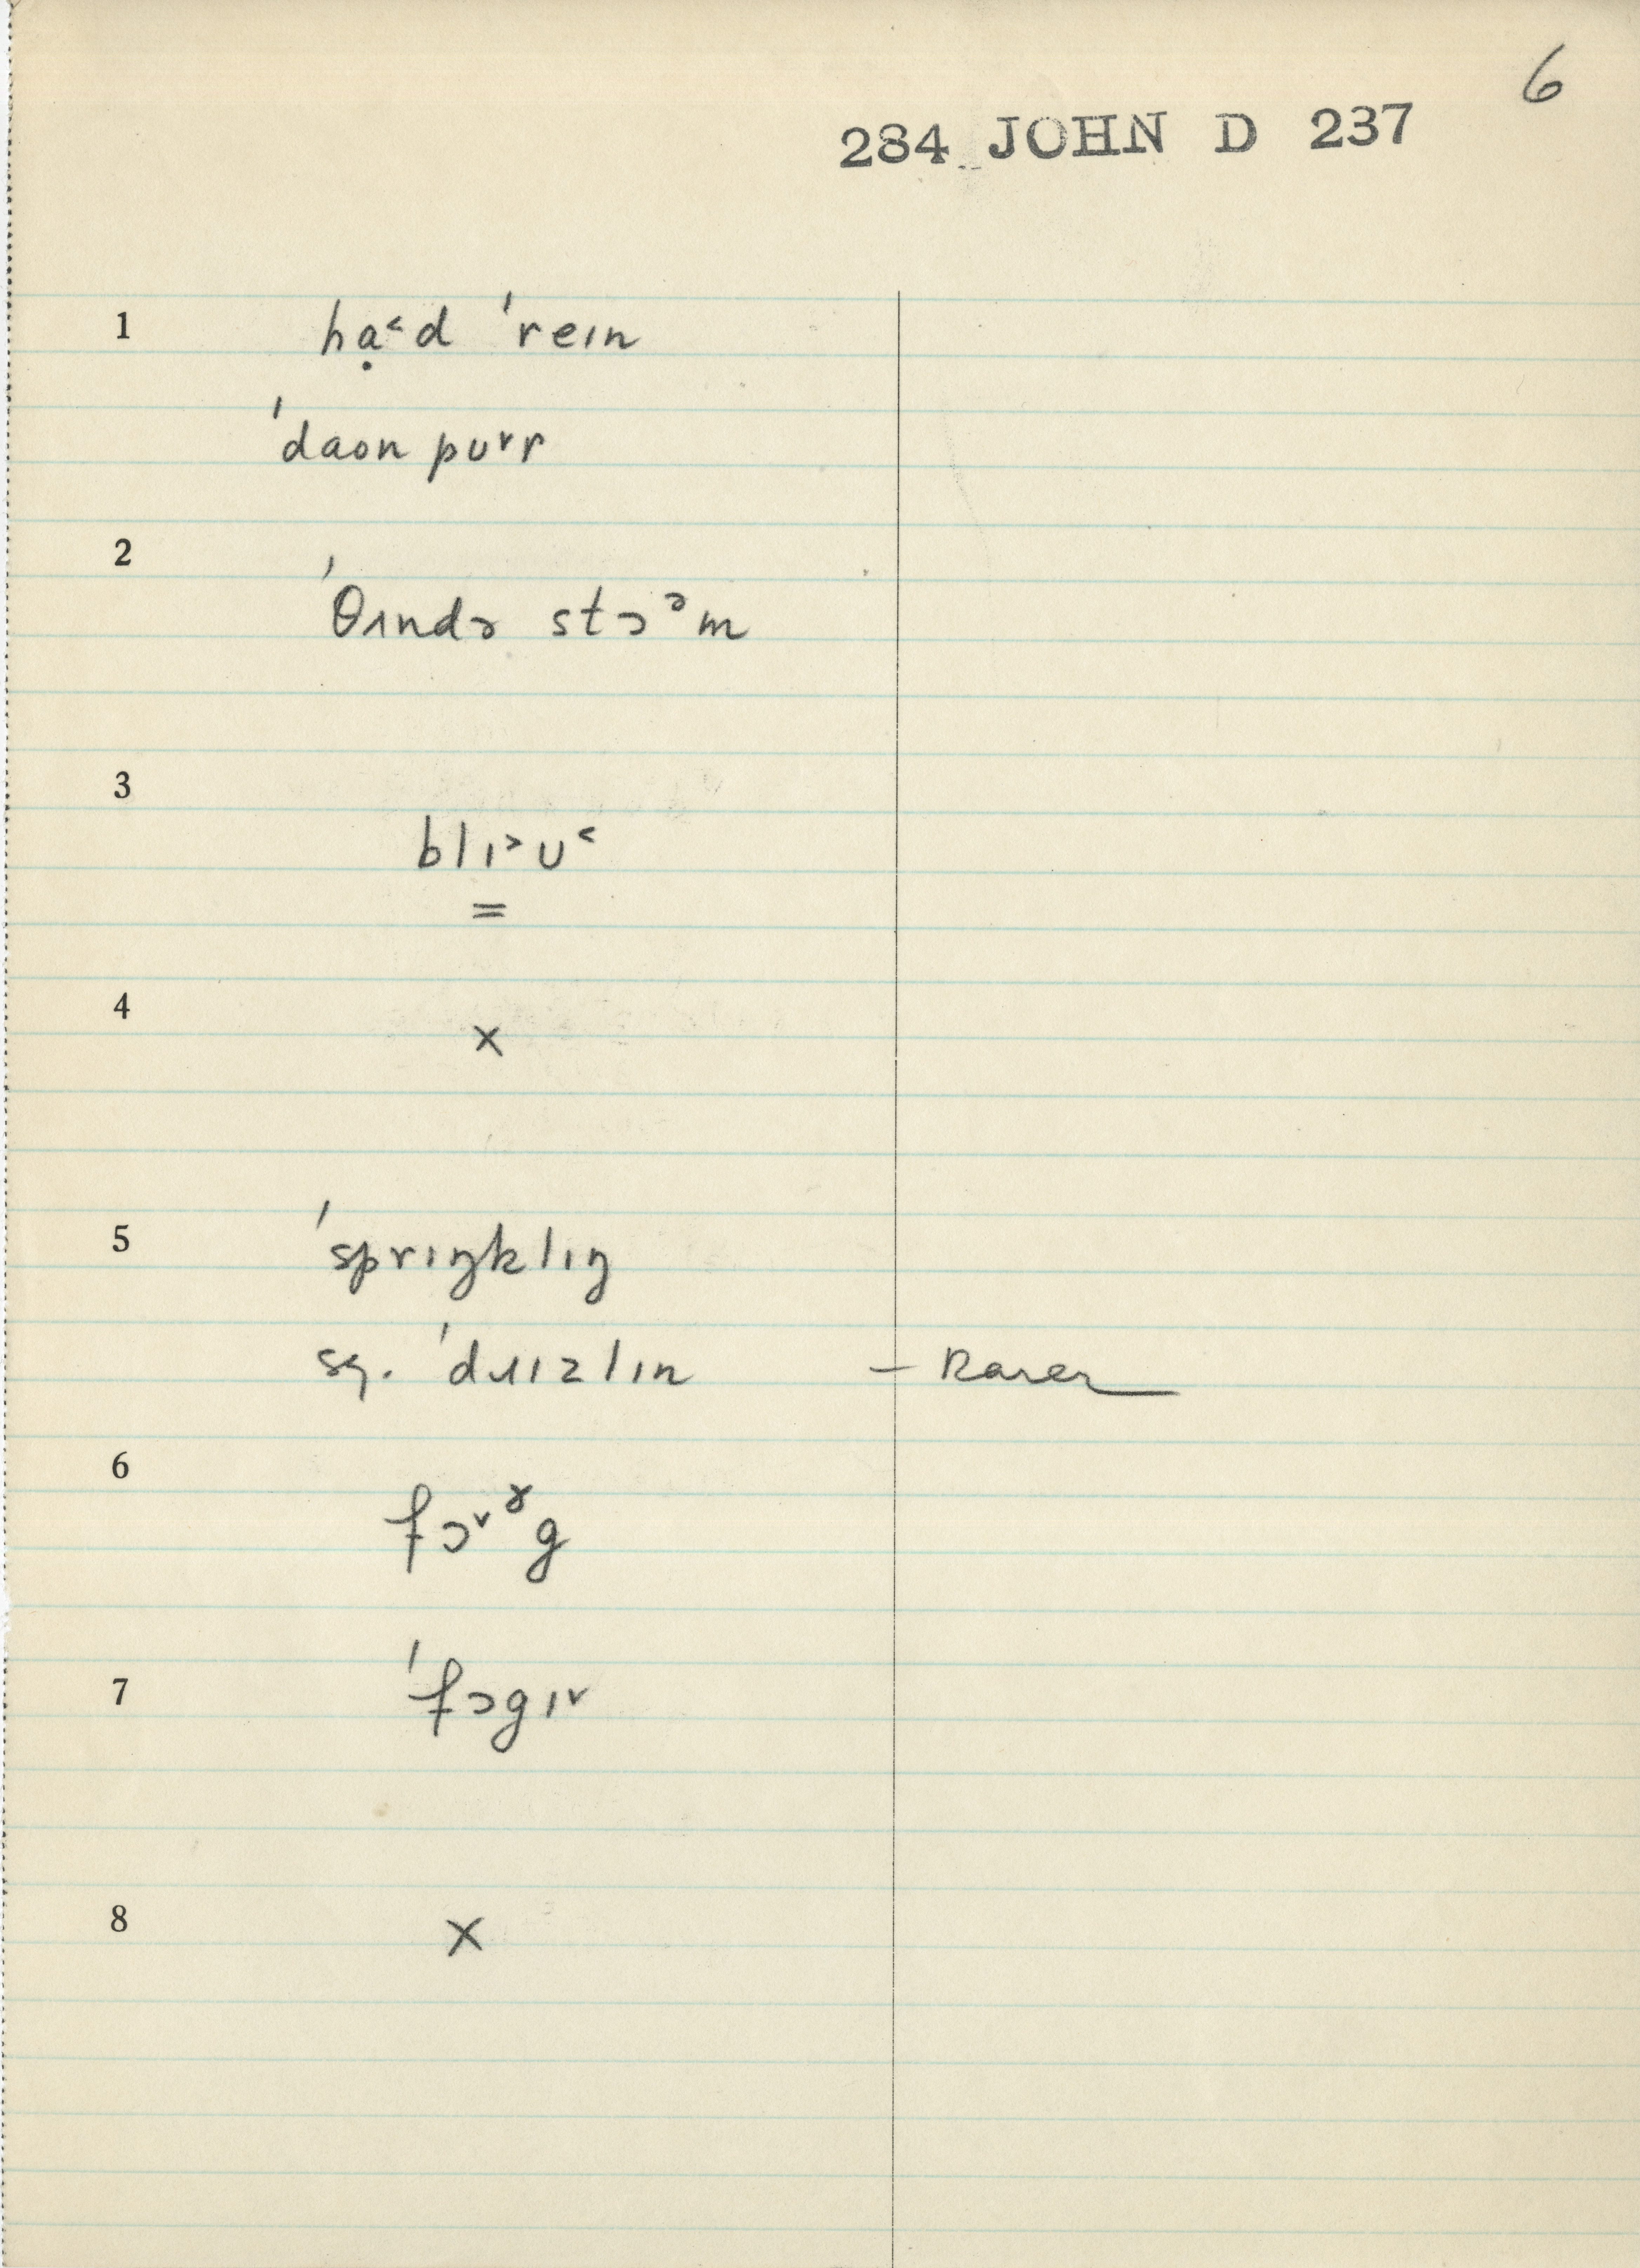 6
284 JOHN D 237
1 hạ˂d ˈreɪn
ˈdaʊn pʊ˅r
2 ˈθʌndə stɔᵊm
3 blɪ˃u˂
=
4 x
5 ˈsprɪŋklɪŋ
sq. ˈdɹɪzlɪn – Rarer
6 fɔ˅ˠg
7 ˈfɔgɪ˅
8 x